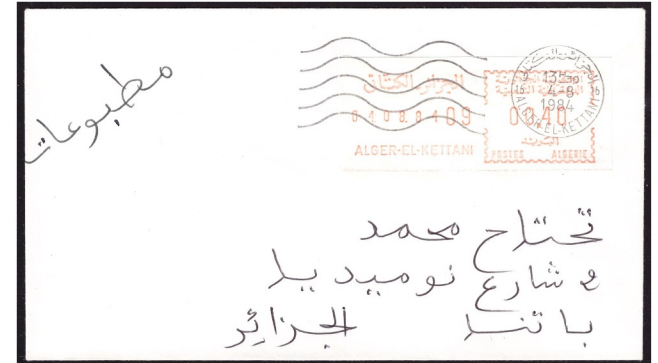 مطبوعات
الجزائر الكتان
040884 09
ALGER-EL-KETTANI
0040
البريد
POSTES ALGERIE
13H30
4-8
1984
16 16
ALGER-EL-KETTANI
محمد
شارع نوميديا
باتنة الجزائر